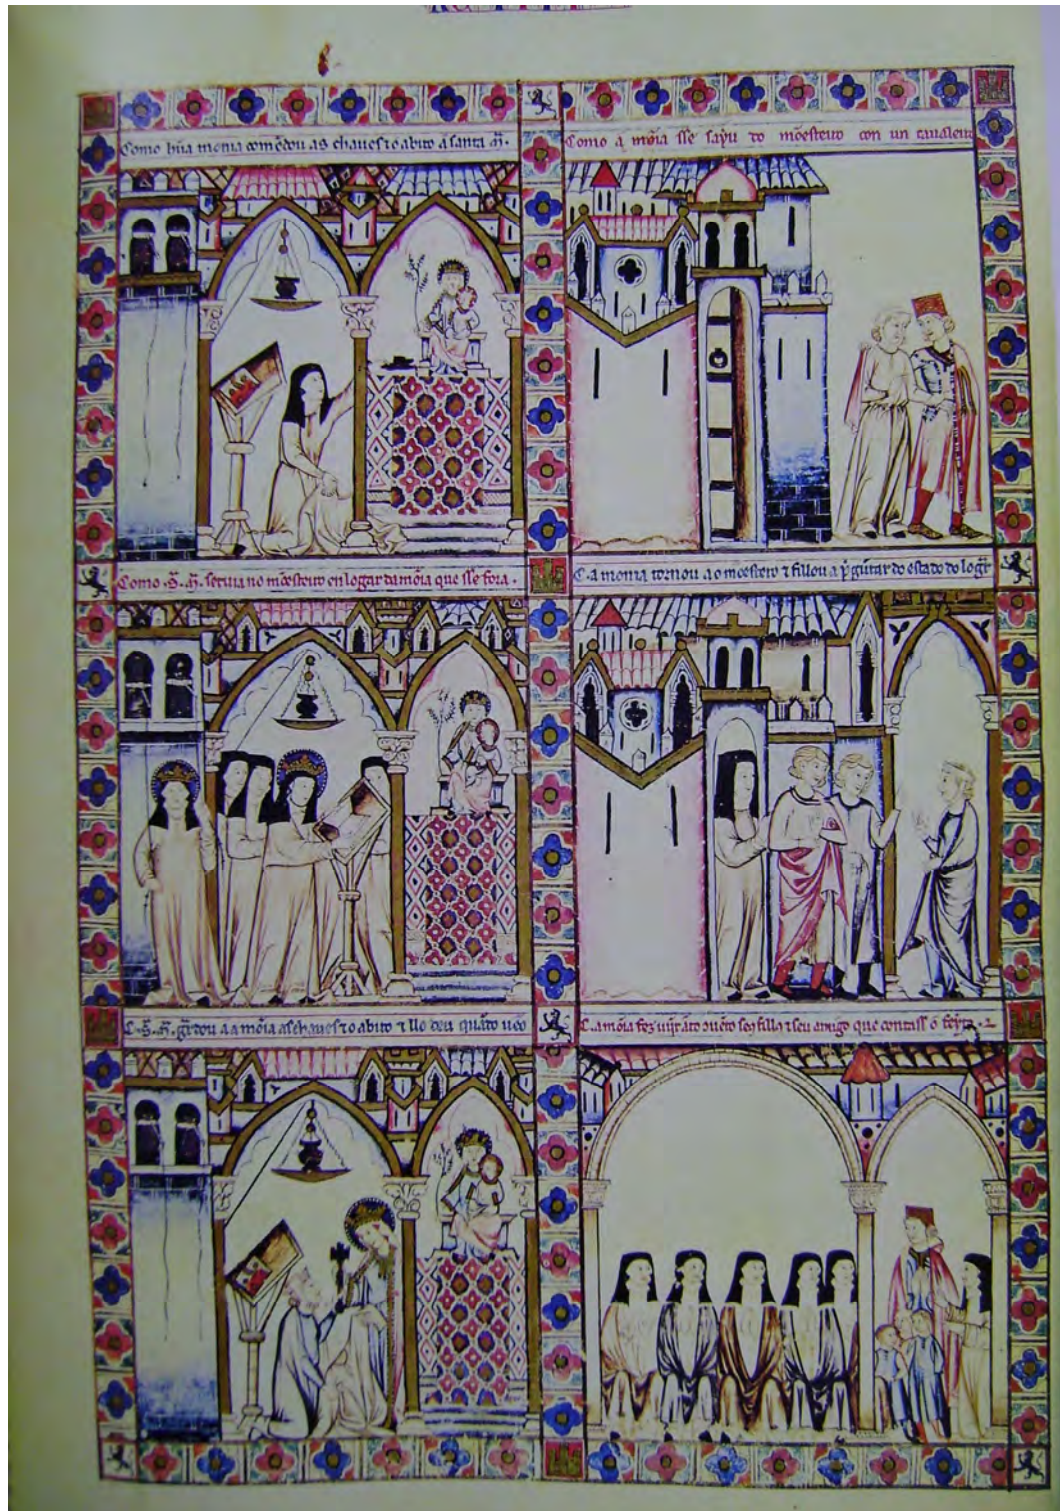 Como hũa monia comẽdou as chaues ⁊ o abito a santa m̃.
Como a mõia sse sayu do mõesteiro con un caualeiro
Como .S. M̃. seruia no mõesteiro en logar da mõia que sse fora.
C. a monia tornou ao moesteiro ⁊ fillou a p̃gũtar do estado do logar
C. S. M̃. gr̃dou a a mõia as chaues ⁊ o abito ⁊ lle deu quãto
C. a mõia fez uĩjr ãto o cõuẽto seus fillos ⁊ seu amigo que contass o feyto.